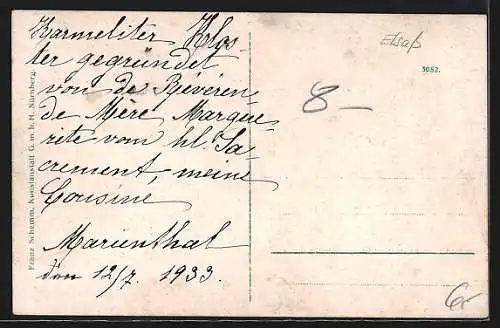 Karmeliter Klos-
ter gegründet
von de Réveren-
de Mère Margue-
rite vom hl. Sa-
crement, meine
Cousine
Marienthal
den 12/7. 1933.
Franz Schemm, Kunstanstalt G. m. b. H. Nürnberg.
Elsaß
5082.
8 —